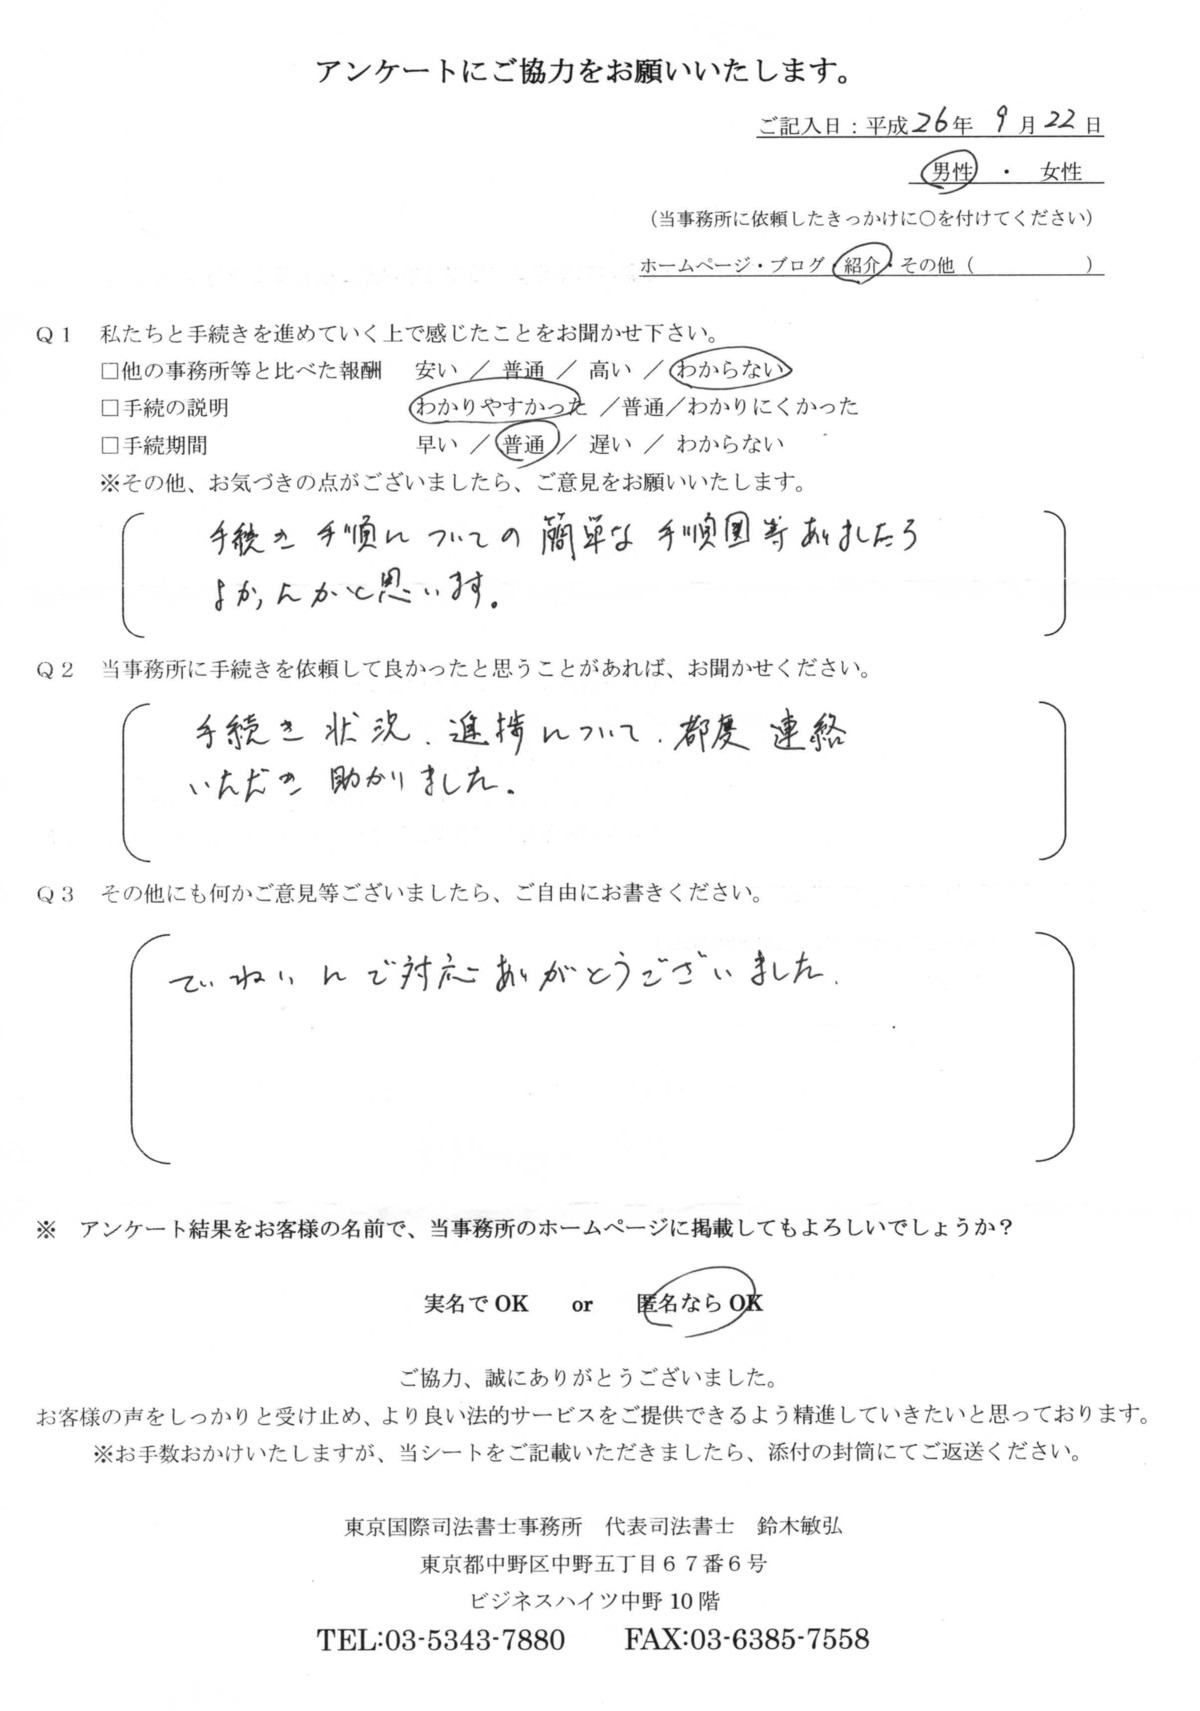 アンケートにご協力をお願いいたします。
ご記入日：平成26年 9月22日
男性 ・ 女性
（当事務所に依頼したきっかけに〇を付けてください）
ホームページ・ブログ・紹介・その他（ ）
Ｑ１ 私たちと手続きを進めていく上で感じたことをお聞かせ下さい。
□他の事務所等と比べた報酬 安い ／ 普通 ／ 高い ／ わからない
□手続の説明 わかりやすかった ／普通／わかりにくかった
□手続期間 早い ／ 普通 ／ 遅い ／ わからない
※その他、お気づきの点がございましたら、ご意見をお願いいたします。
手続き手順についての簡単な手順図等ありましたら
よかったかと思います。
Ｑ２ 当事務所に手続きを依頼して良かったと思うことがあれば、お聞かせください。
手続き状況、進捗について、都度連絡
いただき助かりました。
Ｑ３ その他にも何かご意見等ございましたら、ご自由にお書きください。
ていねいなご対応ありがとうございました。
※ アンケート結果をお客様の名前で、当事務所のホームページに掲載してもよろしいでしょうか？
実名でOK or 匿名ならOK
ご協力、誠にありがとうございました。
お客様の声をしっかりと受け止め、より良い法的サービスをご提供できるよう精進していきたいと思っております。
※お手数おかけいたしますが、当シートをご記載いただきましたら、添付の封筒にてご返送ください。
東京国際司法書士事務所 代表司法書士 鈴木敏弘
東京都中野区中野五丁目６７番６号
ビジネスハイツ中野10階
TEL:03-5343-7880 FAX:03-6385-7558